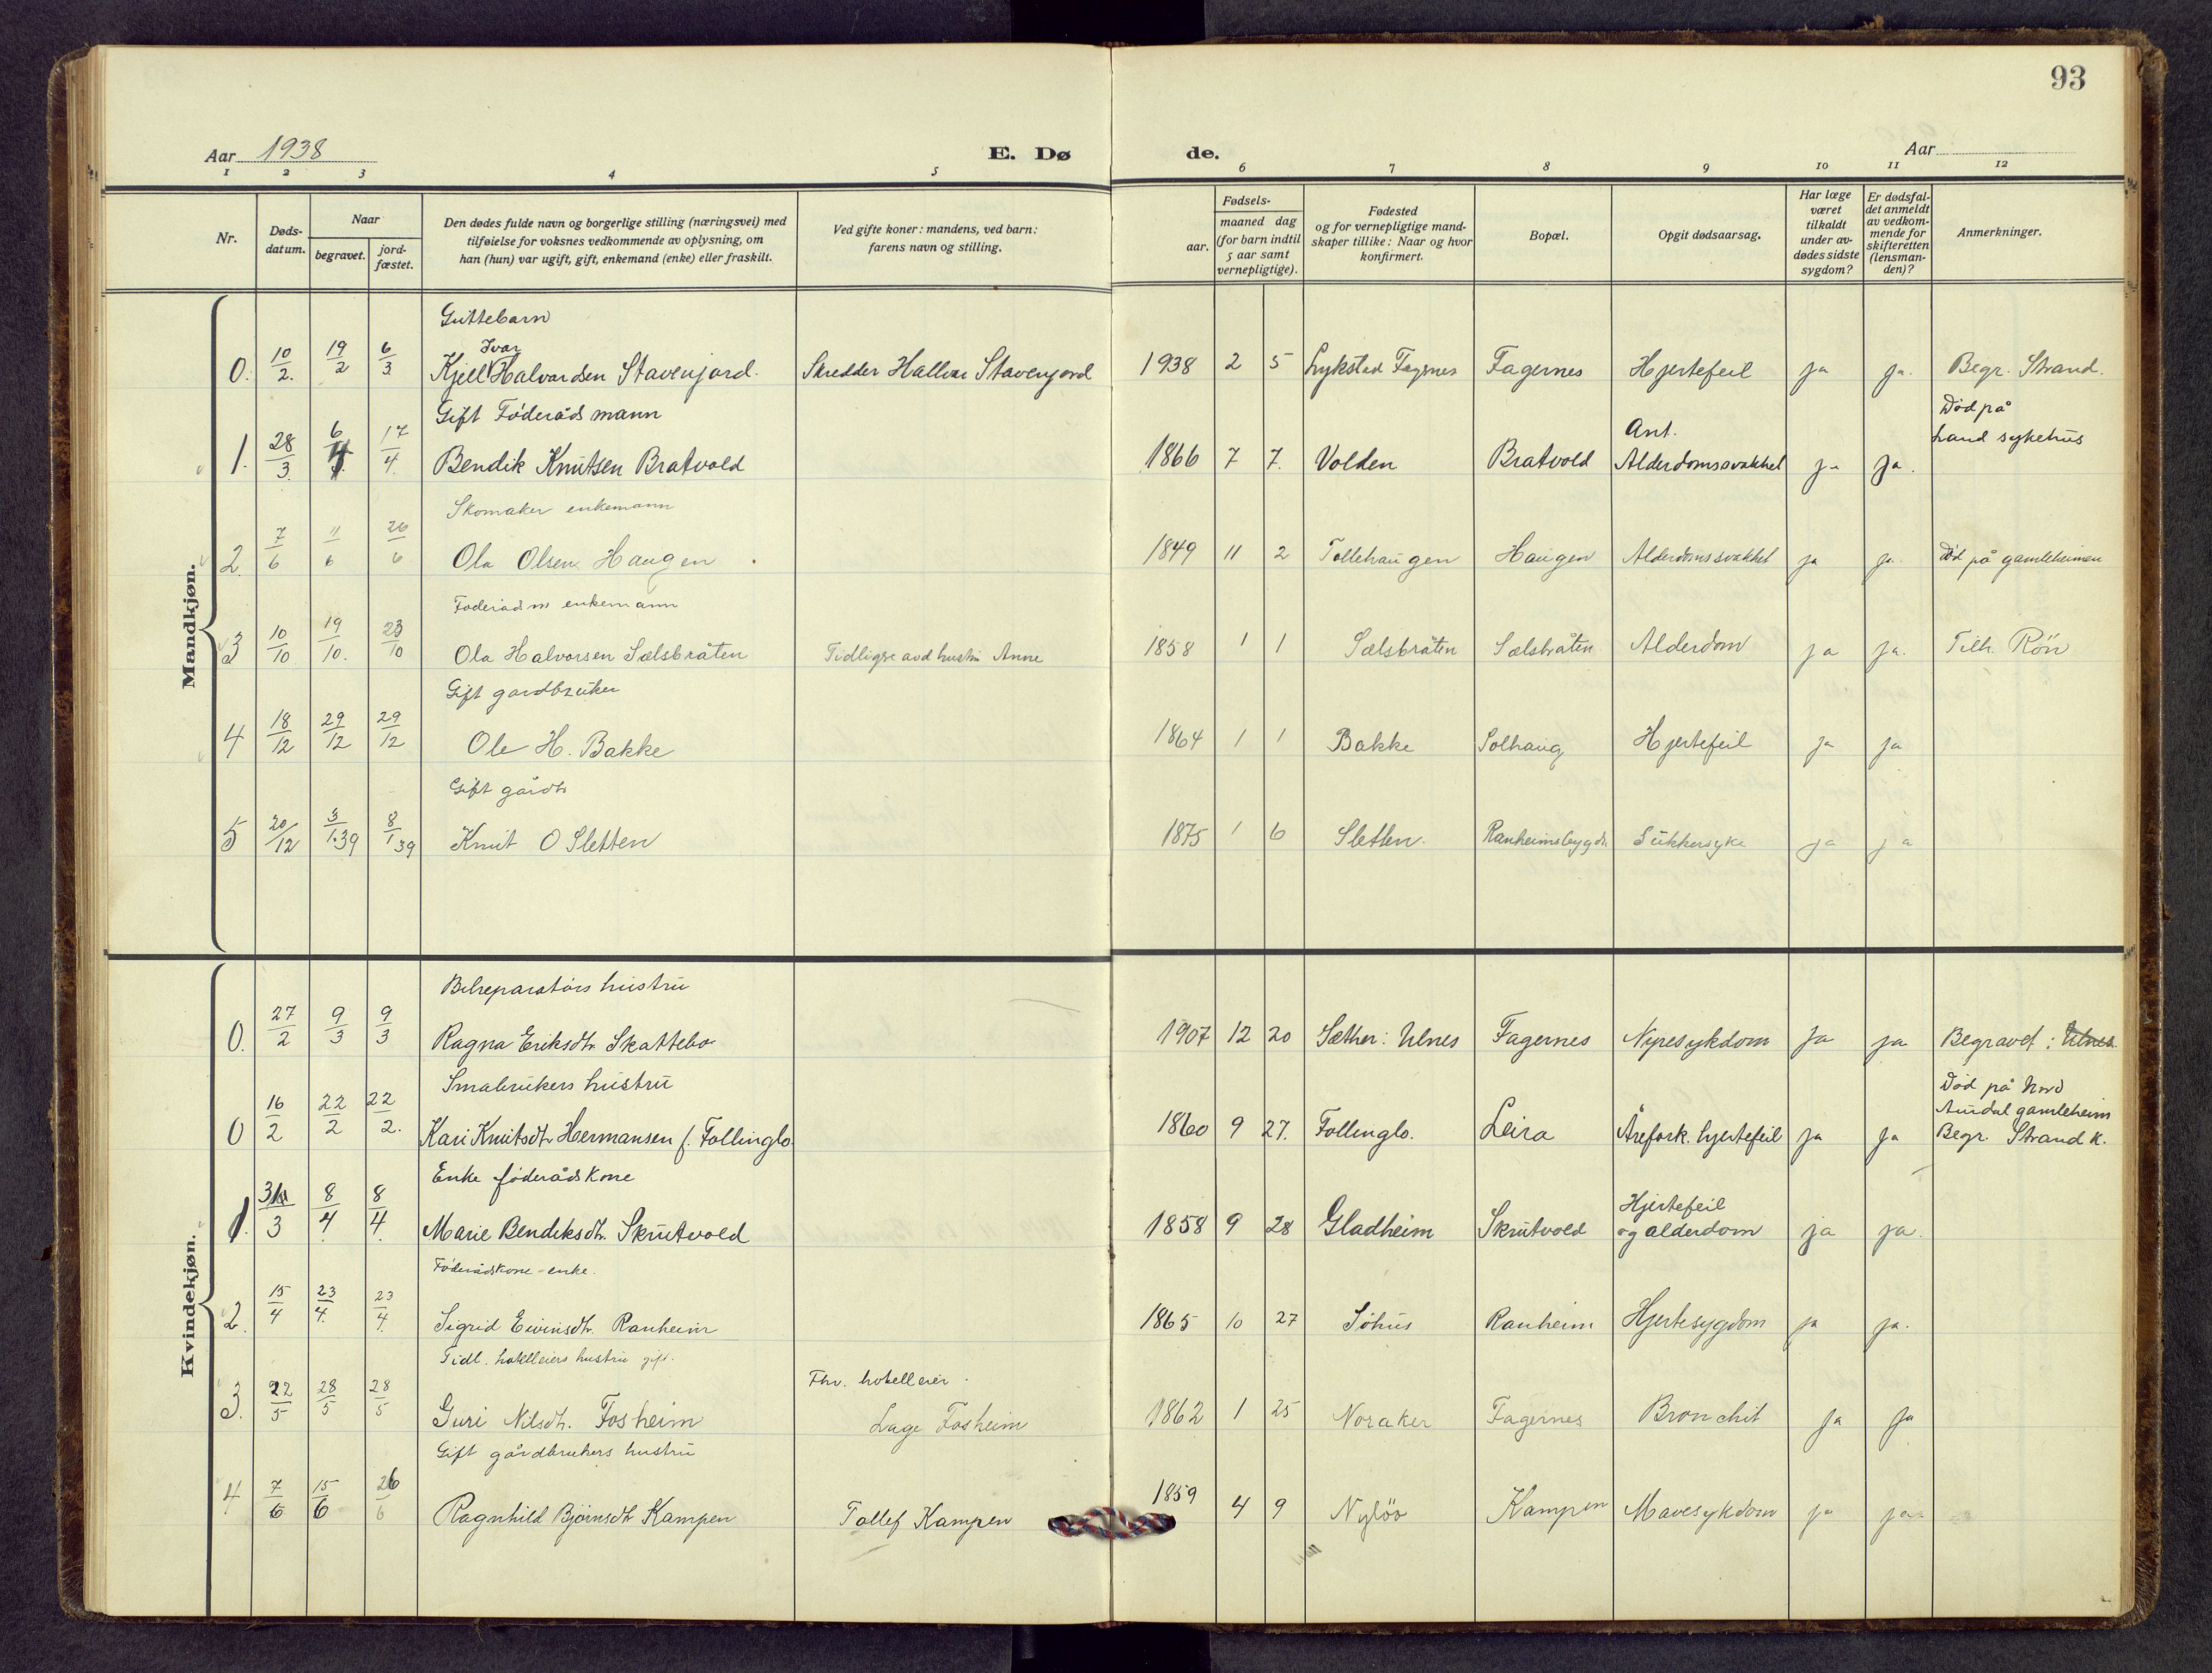 93
Aar 1938 E. Dø de. Aar
1 2 3 4 5 6 7 8 9 10 11 12
Nr.
Døds-
datum.
Naar
begravet.
jord-
fæstet.
Den dødes fulde navn og borgerlige stilling (næringsvei) med
tilføielse for voksnes vedkommende av oplysning, om
han (hun) var ugift, gift, enkemand (enke) eller fraskilt.
Ved gifte koner: mandens, ved barn:
farens navn og stilling.
Fødsels-
aar.
maaned dag
(for barn indtil
5 aar samt
vernepligtige).
Fødested
og for vernepligtige mand-
skaper tillike: Naar og hvor
konfirmert.
Bopæl.
Opgit dødsaarsag.
Har læge
været
tilkaldt
under av-
dødes sidste
sygdom?
Er dødsfal-
det anmeldt
av vedkom-
mende for
skifteretten
(lensman-
den)?
Anmerkninger.
Mandkjøn.
Guttebarn
Ivar
0. 10/2. 19/2 6/3 Kjell Halvardsen Stavenjord. Skredder Hallvar Stavenjord 1938 2 5 Lykstad Fagernes Fagernes Hjertefeil ja ja. Begr. Strand.
Gift Føderåds mann Ant. Død på
Land sykehus
1. 28/3. 6/4 17/4. Bendik Knutsen Bratvold 1866 7 7. Volden Bratvold Alderdomssvakhet ja ja.
Skomaker enkemann
2. 7/6 11/6 26/6 Ola Olsen Haugen 1849 11 2 Tollehaugen Haugen Alderdomssvakhet ja ja. Død på gamleheimen
Føderådsm enkemann
3 10/10 19/10. 23/10 Ola Halvorsen Sælsbråten Tidligere avd hustru Anne 1858 1 1 Sælsbråten Sælsbråten Alderdom ja ja. Tilh. Røn
Gift gardbruker
4 18/12 29/12 29/12 Ole H. Bakke 1864 1 1 Bakke Solhaug Hjertefeil ja ja
Gift gårdbr
5 20/12 3/1.39 8/1 39 Knut O Sletten 1875 1 6 Sletten. Ranheimsbygda Sukkersyke ja ja
Kvindekjøn.
Bilreparatørs hustru
0. 27/2 9/3 9/3 Ragna Eriksdtr. Skattebo 1907 12 20 Sæther: Ulnes Fagernes Nyresykdom ja ja Begravet: Ulnes
Småbrukers hustru Død på Nord
Aurdal gamleheim
0 16/2 22/2 22/2. Kari Knutsdtr Hermansen f. Follinglo 1860 9 27. Follinglo. Leira Årefork. hjertefeil ja ja Begr. Strand k.
Enke føderådskone
Hjertefeil
1. 31/3 8/4 8/4. Marie Bendiksdtr. Skrutvold 1858 9 28 Gladheim Skrutvold og alderdom ja ja.
Føderådskone - enke.
2. 15/4 23/4. 23/4. Sigrid Eivinsdtr. Ranheim 1865 10 27 Søhus Ranheim Hjertesygdom ja ja.
Tidl. hotelleiers hustru gift. Fhv. hotelleier.
3. 22/5 28/5 28/5 Guri Nilsdtr. Fosheim Lage Fosheim 1862 1 25 Noraker Fagernes Bronchit ja ja
Gift gårdbrukers hustru
4 7/6 15/6 26/6 Ragnhild Bjørnsdtr Kampen Tollef Kampen 1859 4 9 Nyløo Kampen Mavesykdom ja ja